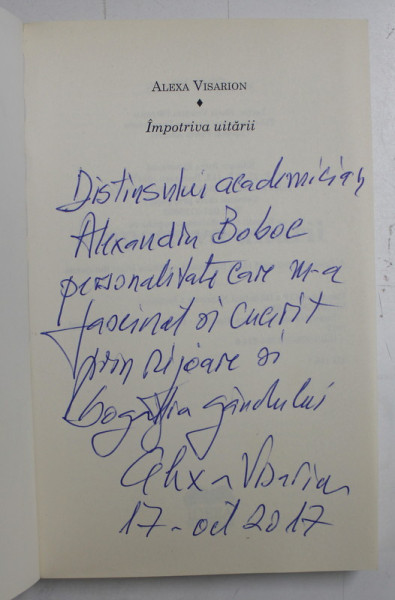 ALEXA VISARION
♦
Împotriva uitării
Distinsului academician
Alexandru Boboc
personalitate care m-a
fascinat și cucerit
prin rigoare și
bogăția gândului
Alexa Visarion
17-oct 2017